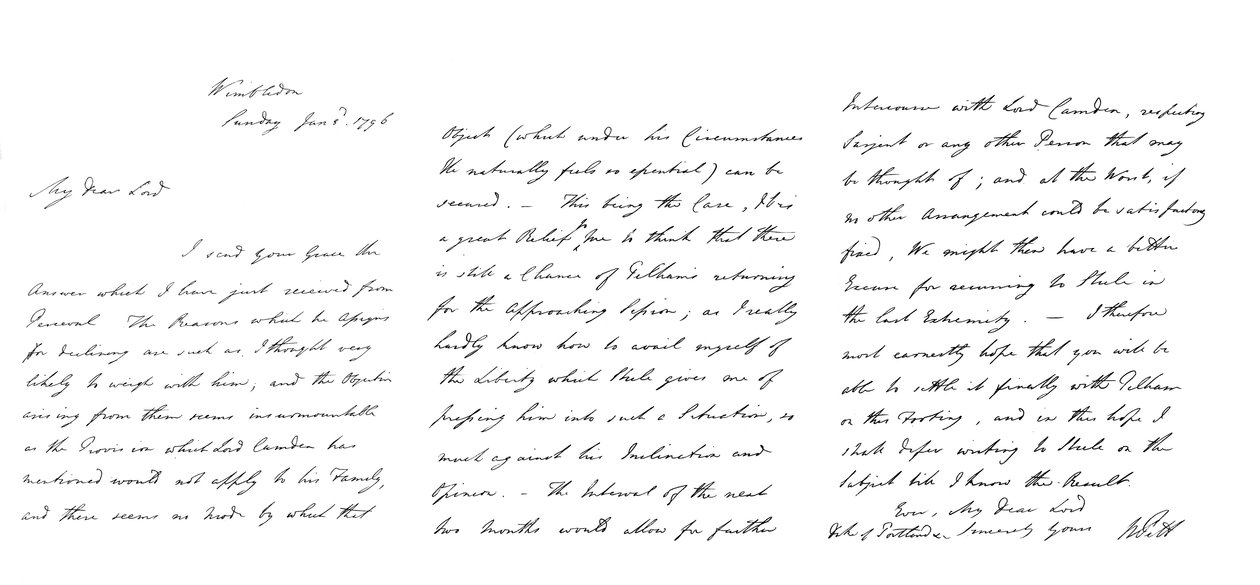 Wimbledon
Sunday Jan 3d. 1796
My dear Lord
I send your Grace the
Answer which I have just received from
Perceval The Reasons which he assigns
for declining are such as I thought very
likely to weigh with him; and the Objection
arising from them seems insurmountable
as the Provision which Lord Camden has
mentioned would not apply to his Family,
and there seems no Mode by which that
Object (which under his Circumstances
He naturally feels so essential) can be
secured. — This being the Case, It is
a great Relief to me to think that there
is still a Chance of Pelham's returning
for the approaching Session; as I really
hardly know how to avail myself of
the Liberty which Stele gives me of
pressing him into such a Situation, so
much against his Inclination and
Opinion. — The Interval of the next
two Months would allow for further
Intercourse with Lord Camden, respecting
Sarjent or any other Person that may
be thought of; and at the Worst, if
no other Arrangement could be satisfactorily
fixed, We might then have a better
Excuse for recurring to Stele in
the last Extremity. — I therefore
most earnestly hope that you will be
able to settle it finally with Pelham
on this Footing, and in this hope I
shall defer writing to Stele on the
Subject till I know the Result.
Ever, My Dear Lord
Duke of Portland &c Sincerely Yours W Pitt